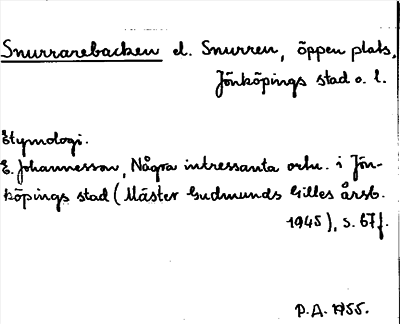 Snurrarebacken el. Snurren, öppen plats,
Jönköpings stad o. l.
Etymologi.
E. Johannesson, Några intressanta ortn. i Jön-
köpings stad (Mäster Gudmunds Gilles årsb.
1945), s. 67f.
P.A. 1955.